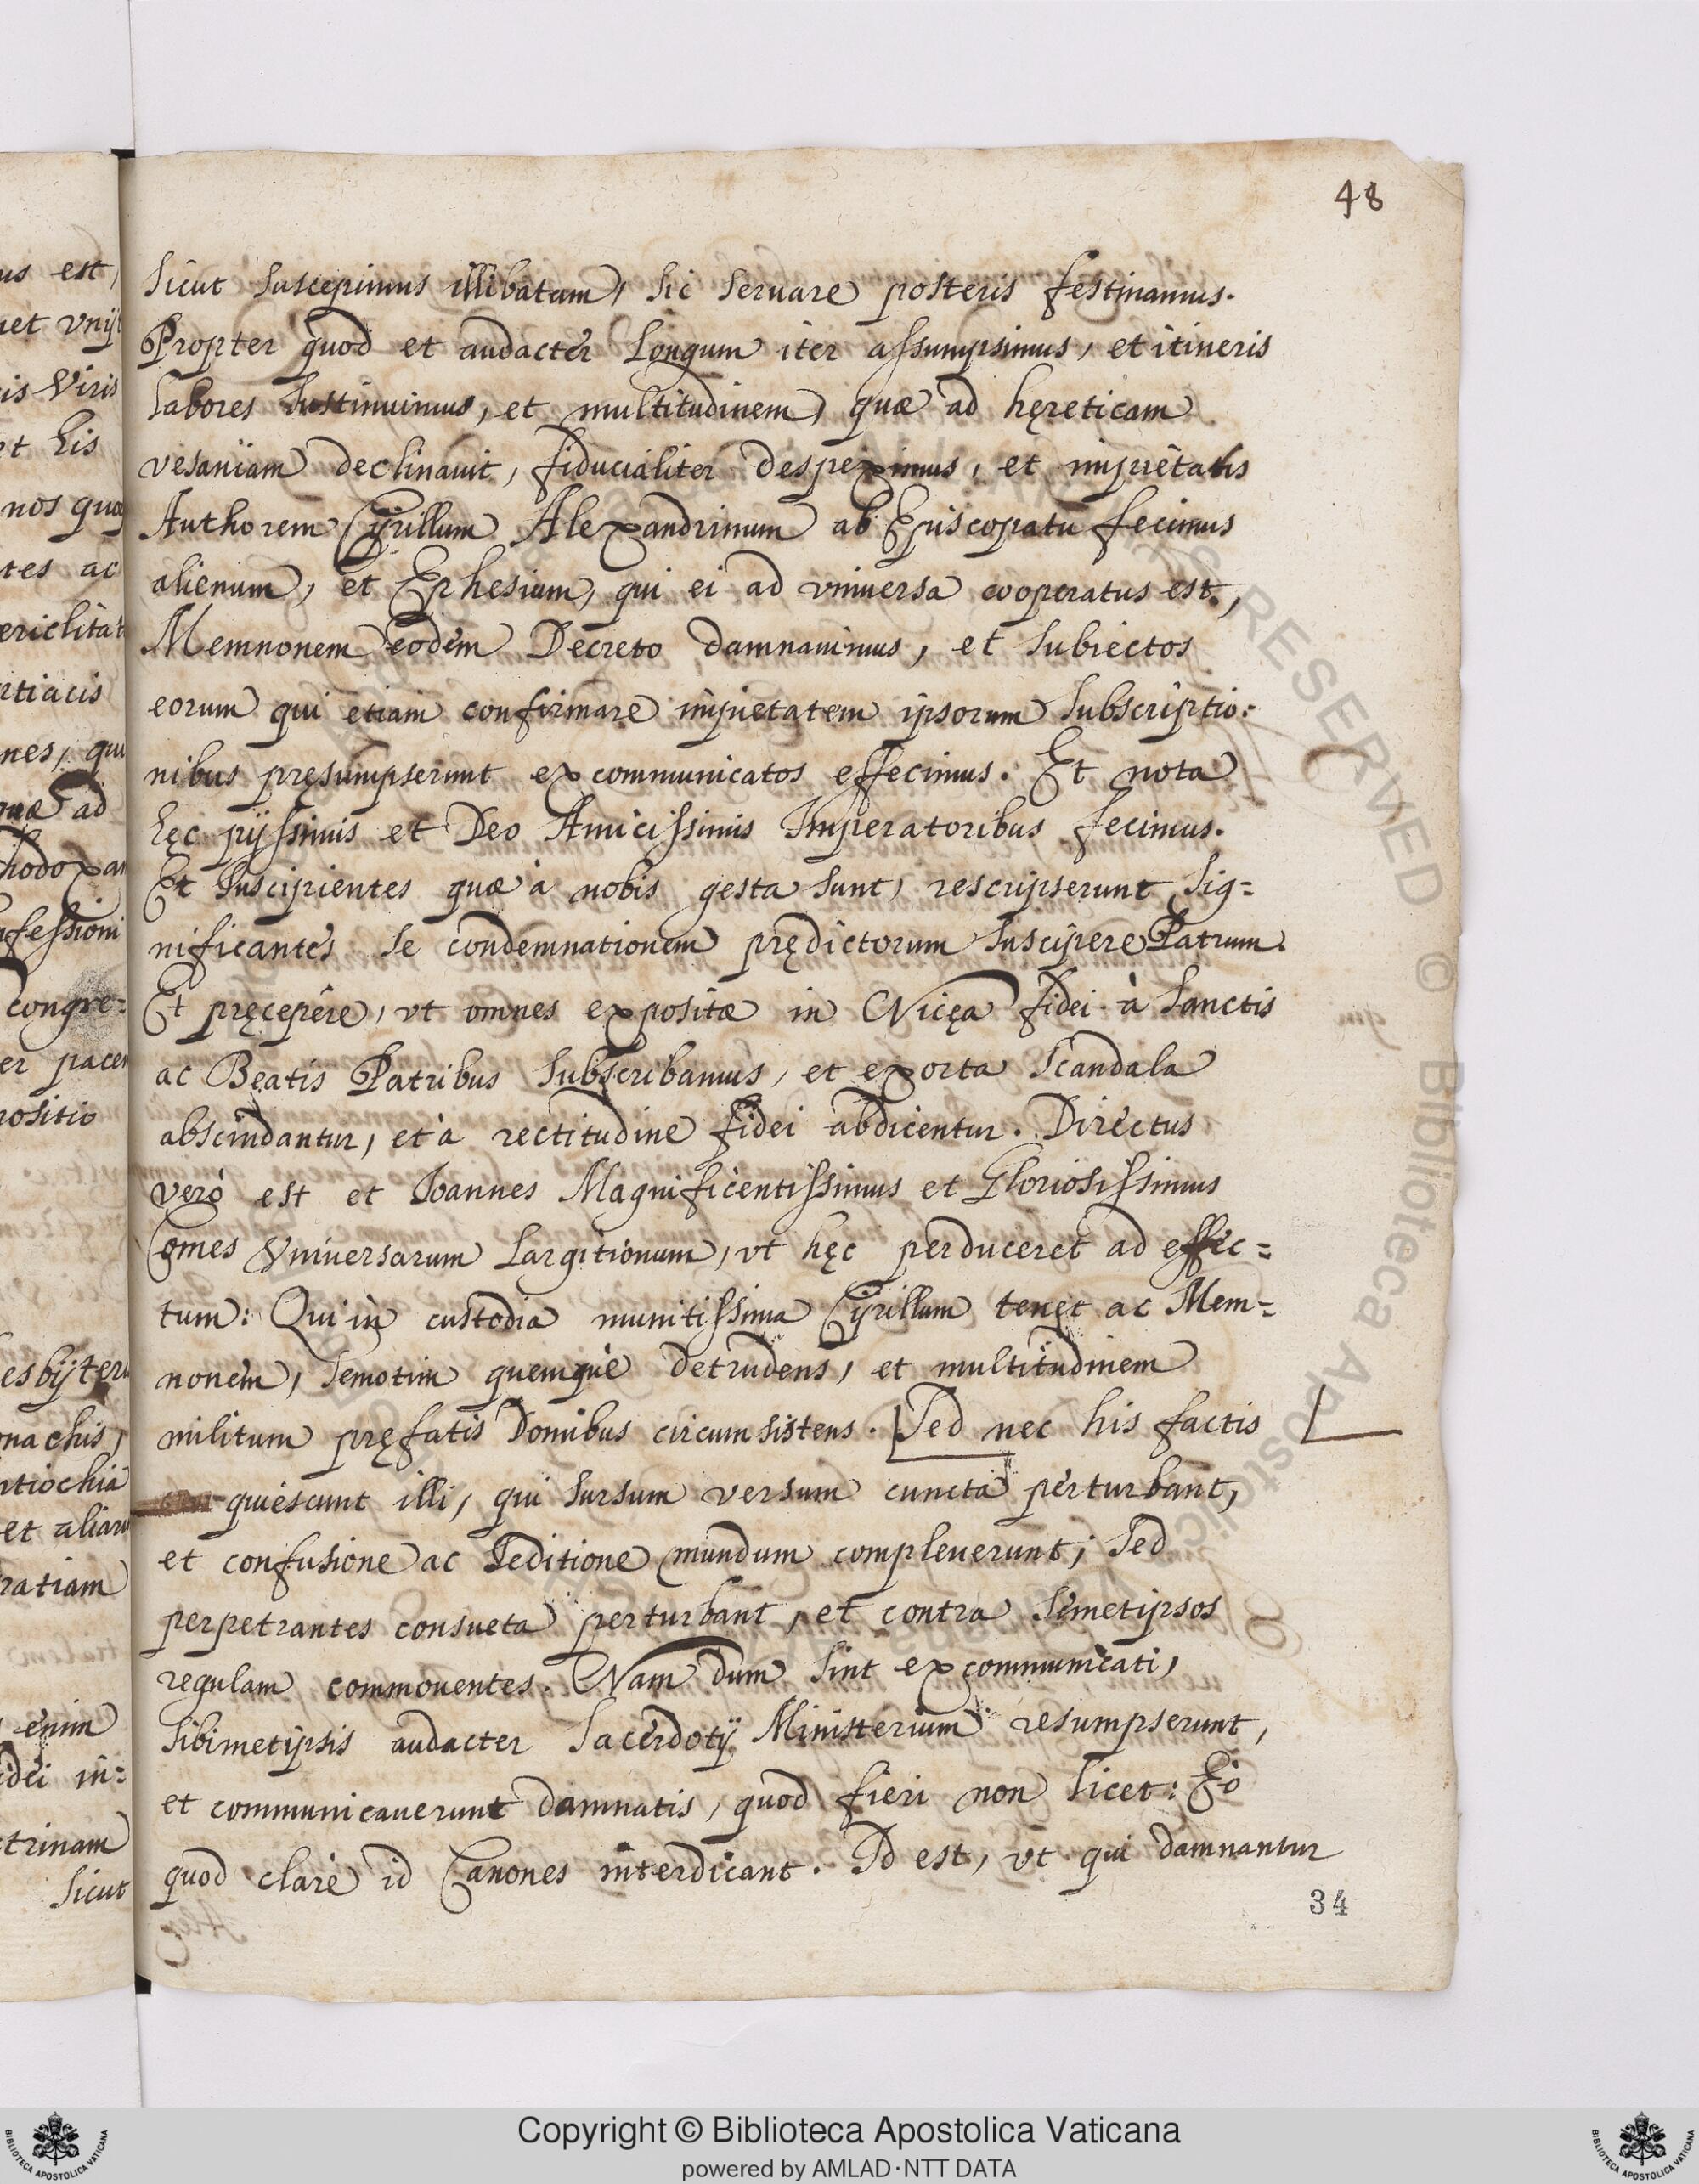 48
sicut suscepimus illibatam, sic seruare posteris festinamus.
Propter quod et audacter longum iter assumpsimus, et itineris
labores sustinuimus, et multitudinem, quæ ad hęreticam
vesaniam declinauit, fiducialiter despeximus, et impietatis
Authorem Cyrillum Alexandrinum ab Episcopatu fecimus
alienum, et Ephesium, qui ei ad vniuersa cooperatus est,
Memnonem eodem Decreto damnauimus, et subiectos
eorum qui etiam confirmare impietatem ipsorum subscriptio=
nibus pręsumpserunt excommunicatos effecimus. Et nota
hęc pijssimis et Deo Amicissimis Imperatoribus fecimus.
Et suscipientes quæ à nobis gesta sunt, rescripserunt sig=
nificantes se condemnationem prędictorum suscipere Patrum.
Et pręcepêre, vt omnes expositæ in Nicęa fidei à Sanctis
ac Beatis Patribus subscribamus, et exorta scandala
abscindantur, et à rectitudine fidei abdicentur. Directus
verò est et Ioannes Magnificentissimus et Gloriosissimus
Comes Vniuersarum Largitionum, vt hęc perduceret ad effec=
tum: Qui in custodia munitissima Cyrillum tenet ac Mem=
nonem, semotim quemque detrudens, et multitudinem
militum pręfatis Domibus circumsistens. Sed nec his factis
quiescunt illi, qui sursum versum cuncta perturbant,
et confusione ac seditione mundum compleuerunt; sed
perpetrantes consueta perturbant, et contra semetipsos
regulam commouentes. Nam dum sint excommunicati,
sibimetipsis audacter Sacerdotij Ministerium resumpserunt,
et communicauerunt damnatis, quod fieri non licet: Eò
quod clarè id Canones interdicant. Id est, vt qui damnantur
34
us est,
is Viris
et his
tes ac
nes, qui
ad
congre=
ositio
et
enim
idei in=
trinam
sicut
ALL RIGHTS RESERVED © Biblioteca Apostolica Vaticana
Copyright © Biblioteca Apostolica Vaticana
powered by AMLAD·NTT DATA
BIBLIOTECA APOSTOLICA VATICANA
BIBLIOTECA APOSTOLICA VATICANA